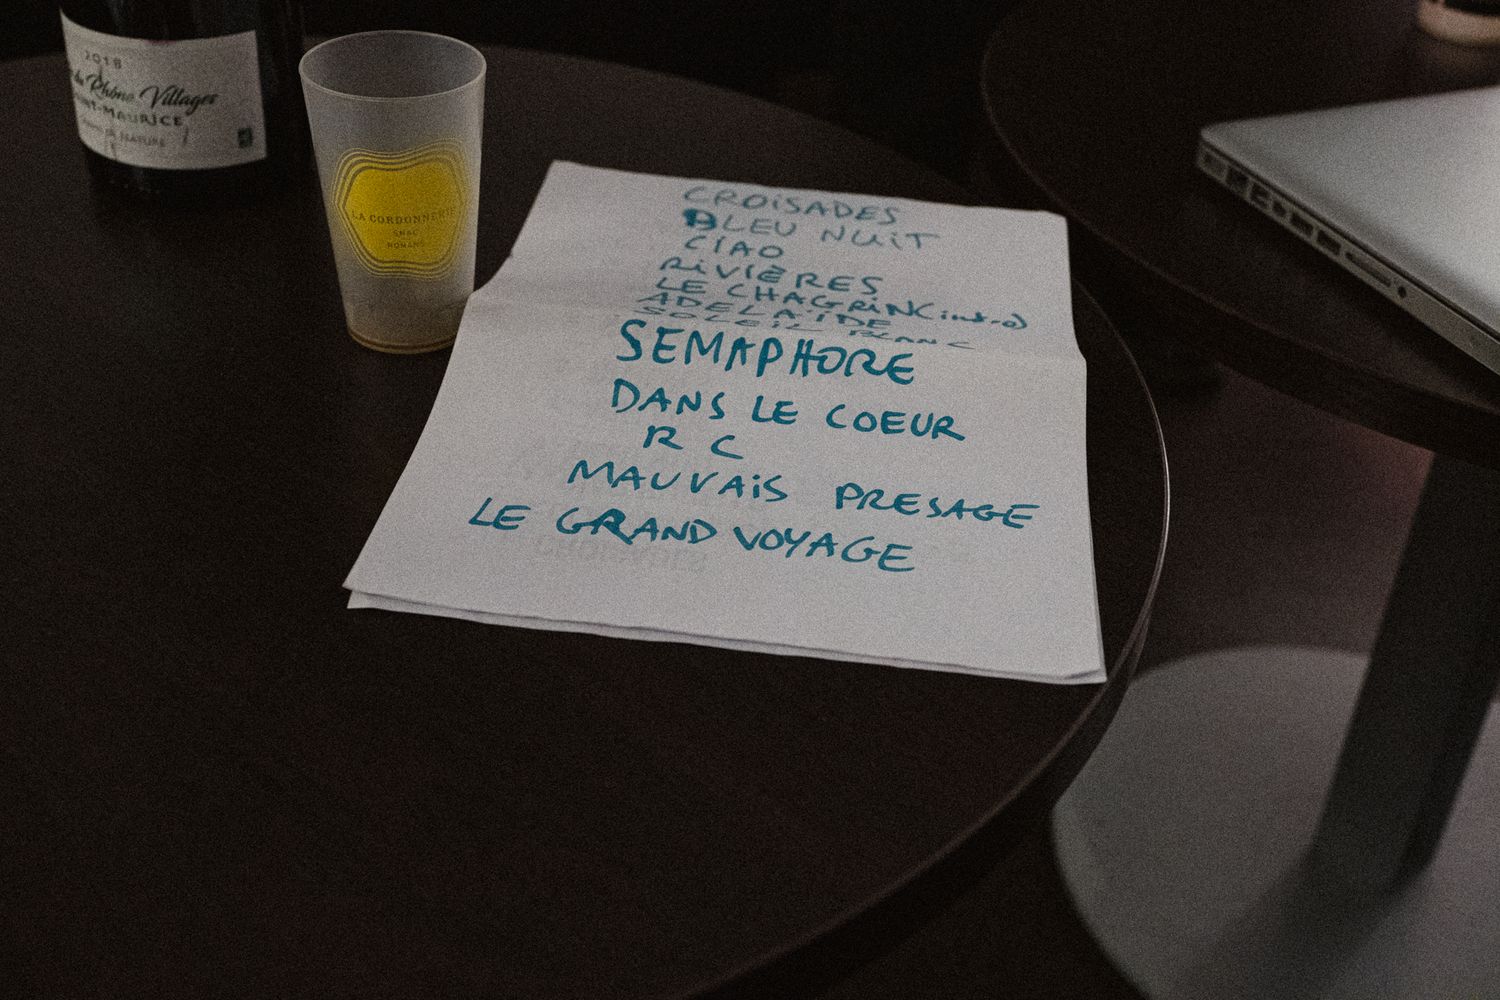 2018
du Rhône Villages
SAINT-MAURICE
NATURE
LA CORDONNERIE
SMAC
ROMANS
CROISADES
BLEU NUIT
CIAO
RIVIÈRES
LE CHAGRIN (intro)
ADELAÏDE
SOLEIL BLANC
SEMAPHORE
DANS LE COEUR
R C
MAUVAIS PRESAGE
LE GRAND VOYAGE